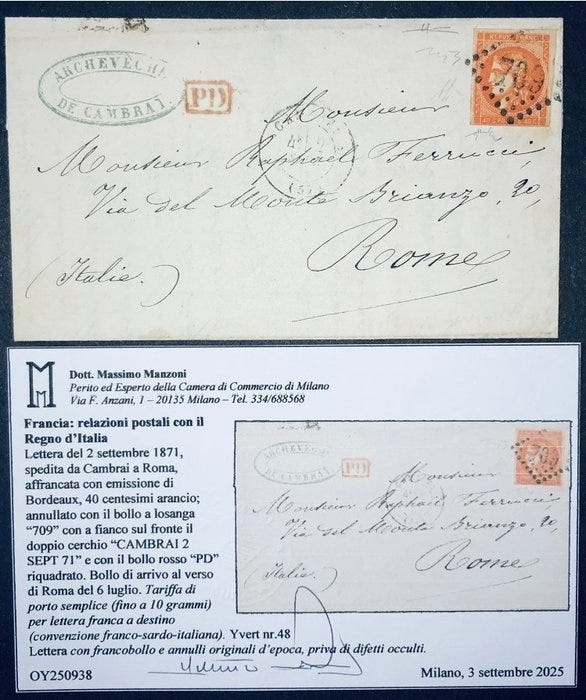 ARCHEVÊCHÉ
DE CAMBRAI
PD
REPUB FRANC
709
Monsieur
Monsieur Raphaël Ferrucci,
Via del Monte Brianzo, 20,
Rome
(Italie.)
Dott. Massimo Manzoni
Perito ed Esperto della Camera di Commercio di Milano
Via F. Anzani, 1 – 20135 Milano – Tel. 334/688568
Francia: relazioni postali con il
Regno d'Italia
Lettera del 2 settembre 1871,
spedita da Cambrai a Roma,
affrancata con emissione di
Bordeaux, 40 centesimi arancio;
annullato con il bollo a losanga
"709" con a fianco sul fronte il
doppio cerchio "CAMBRAI 2
SEPT 71" e con il bollo rosso "PD"
riquadrato. Bollo di arrivo al verso
di Roma del 6 luglio. Tariffa di
porto semplice (fino a 10 grammi)
per lettera franca a destino
(convenzione franco-sardo-italiana). Yvert nr.48
Lettera con francobollo e annulli originali d'epoca, priva di difetti occulti.
OY250938
Milano, 3 settembre 2025
ARCHEVÊCHÉ
DE CAMBRAI
PD
709
Monsieur
Monsieur Raphaël Ferrucci
Via del Monte Brianzo, 20,
Rome
(Italie.)